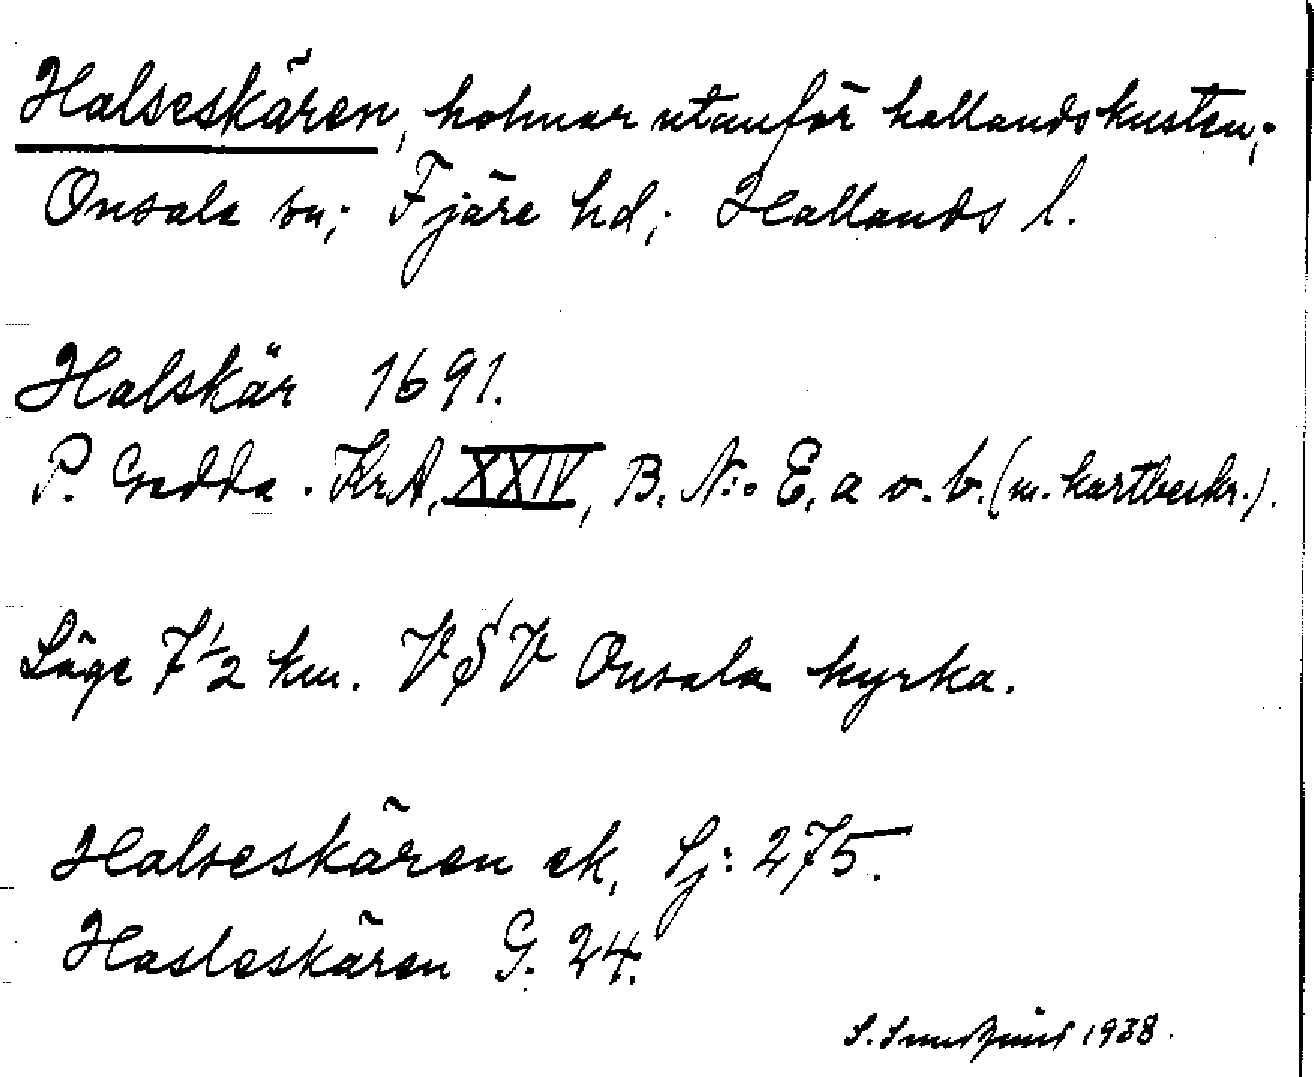 Halseskären, holmar utanför hallandskusten;
Onsala sn; Fjäre hd; Hallands l.
Halskär 1691.
P. Gedda. KrA, XXIV, B. N:o E, a o. b. (m. kartbeskr.).
Läge 7 1/2 km. VSV Onsala kyrka.
Halseskären ek, Sj: 275.
Hasleskären G. 24.
S. 1938.